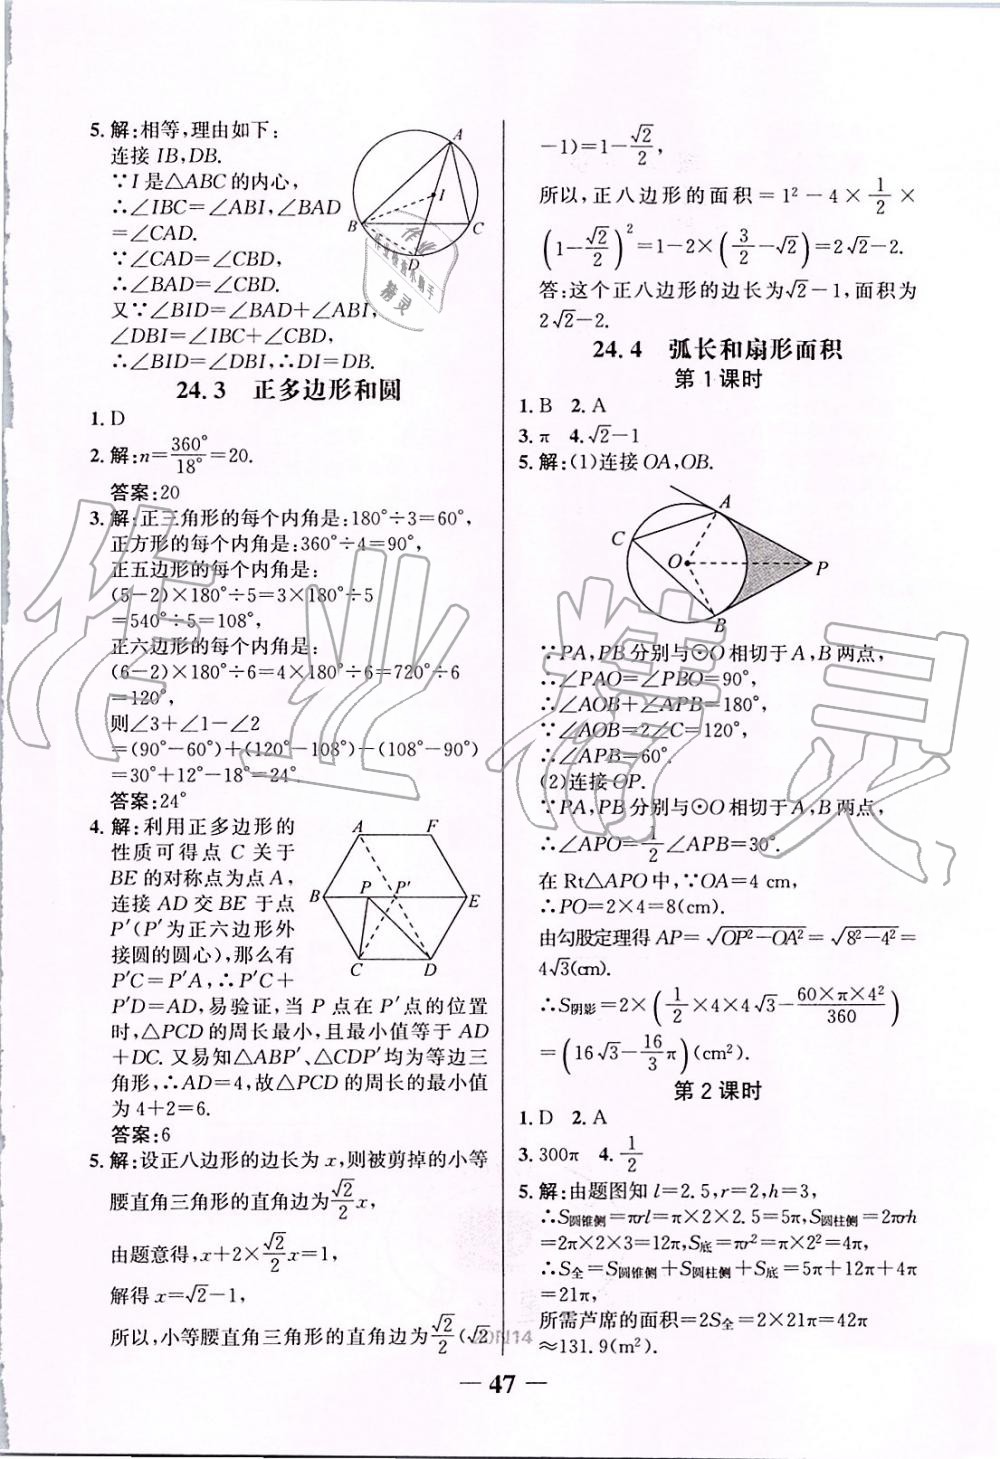 5. 解:相等,理由如下:
连接 IB,DB.
∵I 是△ABC 的内心,
∴∠IBC=∠ABI,∠BAD
=∠CAD.
∵∠CAD=∠CBD,
∴∠BAD=∠CBD.
又∵∠BID=∠BAD+∠ABI,
∠DBI=∠IBC+∠CBD,
∴∠BID=∠DBI,∴DI=DB.
A
I
B
C
D
24.3 正多边形和圆
1. D
2. 解:n=360°/18°=20.
答案:20
3. 解:正三角形的每个内角是:180°÷3=60°,
正方形的每个内角是:360°÷4=90°,
正五边形的每个内角是:
(5-2)×180°÷5=3×180°÷5
=540°÷5=108°,
正六边形的每个内角是:
(6-2)×180°÷6=4×180°÷6=720°÷6
=120°,
则∠3+∠1-∠2
=(90°-60°)+(120°-108°)-(108°-90°)
=30°+12°-18°=24°.
答案:24°
4. 解:利用正多边形的
性质可得点 C 关于
BE 的对称点为点 A,
连接 AD 交 BE 于点
P′(P′为正六边形外
接圆的圆心),那么有
P′C=P′A,∴P′C+
P′D=AD,易验证,当 P 点在 P′点的位置
时,△PCD 的周长最小,且最小值等于 AD
+DC. 又易知△ABP′、△CDP′均为等边三
角形,∴AD=4,故△PCD 的周长的最小值
为 4+2=6.
答案:6
A F
B P P′ E
C D
5. 解:设正八边形的边长为 x,则被剪掉的小等
腰直角三角形的直角边为√2/2 x,
由题意得,x+2×√2/2 x=1,
解得 x=√2-1,
所以,小等腰直角三角形的直角边为√2/2(√2
-1)=1-√2/2,
所以,正八边形的面积=1²-4×1/2×
(1-√2/2)²=1-2×(3/2-√2)=2√2-2.
答:这个正八边形的边长为√2-1,面积为
2√2-2.
24.4 弧长和扇形面积
第 1 课时
1. B 2. A
3. π 4. √2-1
5. 解:(1)连接 OA,OB.
A
C
O
P
B
∵PA,PB 分别与⊙O 相切于 A,B 两点,
∴∠PAO=∠PBO=90°,
∴∠AOB+∠APB=180°,
∵∠AOB=2∠C=120°,
∴∠APB=60°.
(2)连接 OP.
∵PA,PB 分别与⊙O 相切于 A,B 两点,
∴∠APO=1/2∠APB=30°.
在 Rt△APO 中,∵OA=4 cm,
∴PO=2×4=8(cm).
由勾股定理得 AP=√(OP²-OA²)=√(8²-4²)=
4√3(cm).
∴S阴影=2×(1/2×4×4√3-60×π×4²/360)
=(16√3-16/3π)(cm²).
第 2 课时
1. D 2. A
3. 300π 4. 1/2
5. 解:由题图知 l=2.5,r=2,h=3,
∴S圆锥侧=πrl=π×2×2.5=5π,S圆柱侧=2πrh
=2π×2×3=12π,S底=πr²=π×2²=4π,
∴S全=S圆锥侧+S圆柱侧+S底=5π+12π+4π
=21π,
所需芦席的面积=2S全=2×21π=42π
≈131.9(m²).
— 47 —
作业精灵